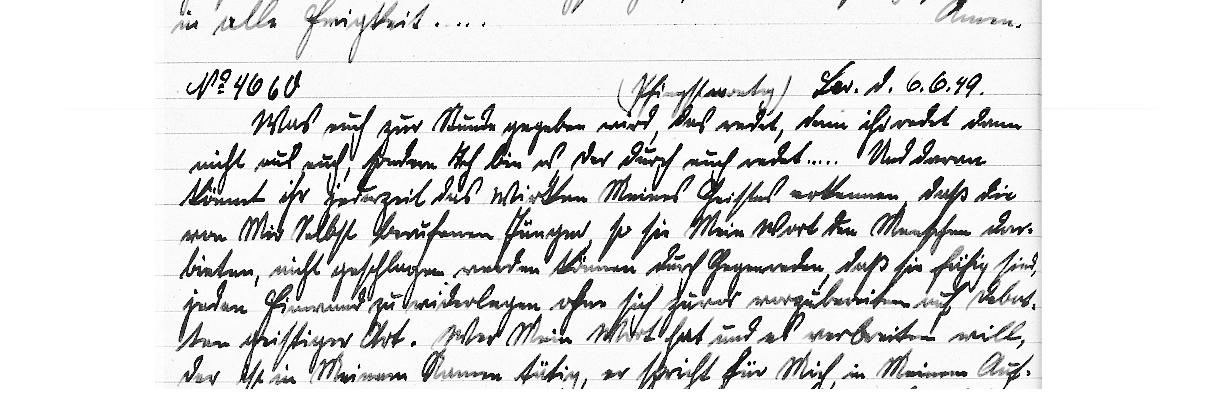 in alle Ewigkeit....                Amen.
No 4660        (Pfingstmontag)   Ler. d. 6.6.49.
Was euch zur Stunde gegeben wird, das redet, denn ihr redet dann
nicht aus euch, sondern Ich bin es, der durch euch redet..... Und daran
könnt ihr jederzeit das Wirken Meines Geistes erkennen, daß die
von Mir Selbst berufenen Jünger, so sie Mein Wort den Menschen dar-
bieten, nicht geschlagen werden können durch Gegenreden, daß sie fähig sind,
jeden Einwand zu widerlegen ohne sich zuvor vorzubereiten auf Debat-
ten geistiger Art. Wer Mein Wort hat und es verbreiten will,
der ist in Meinem Namen tätig, er spricht für Mich, in Meinem Auf-